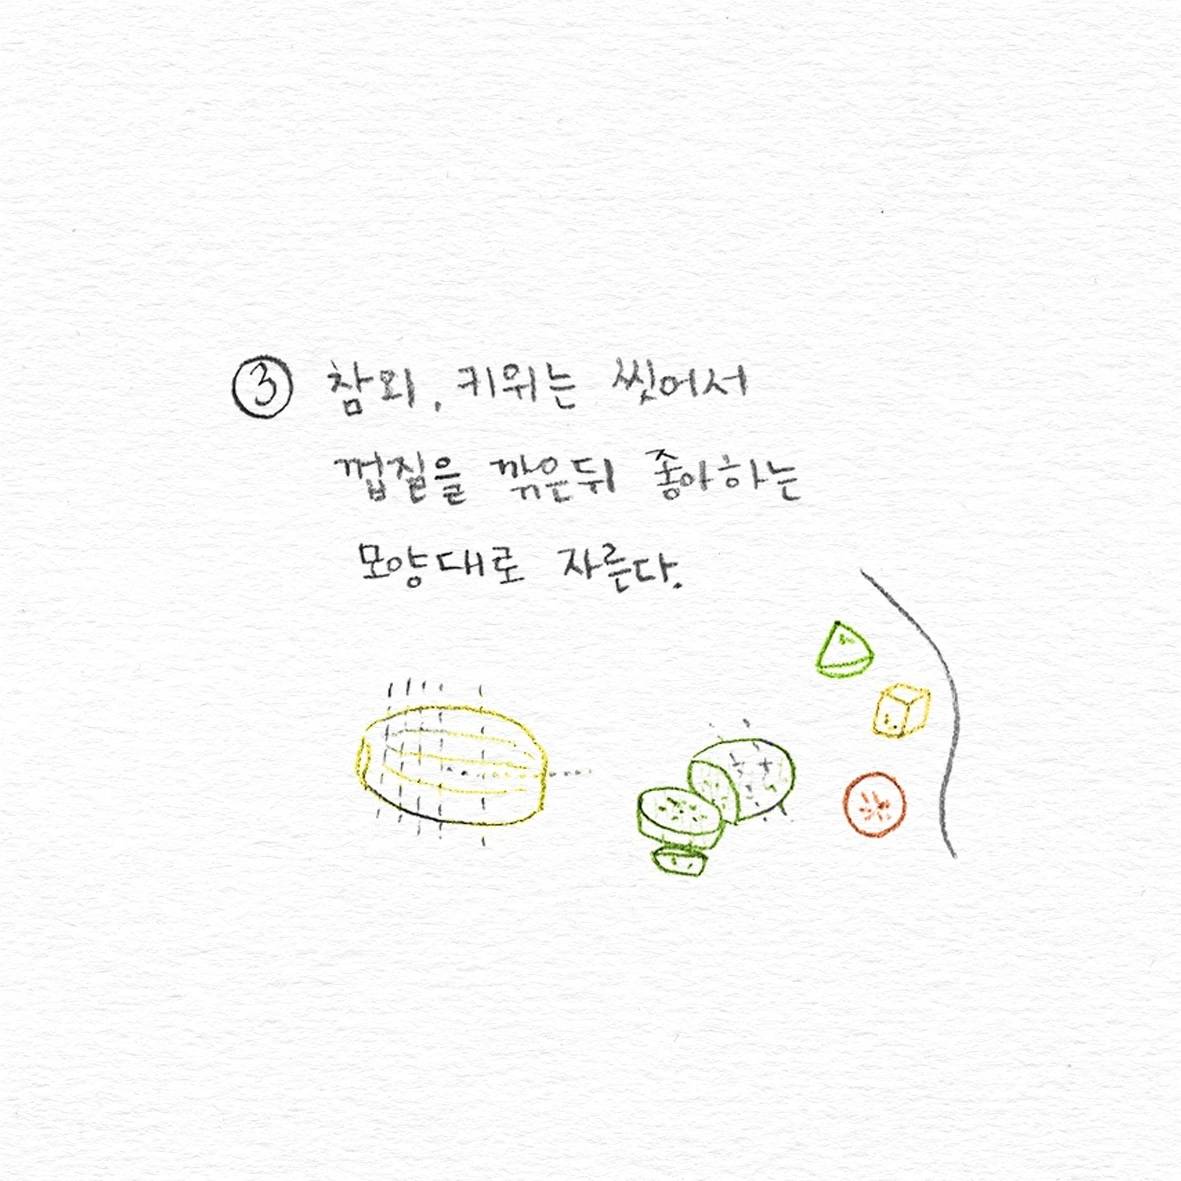 ③ 참외, 키위는 씻어서
껍질을 깎은뒤 좋아하는
모양대로 자른다.